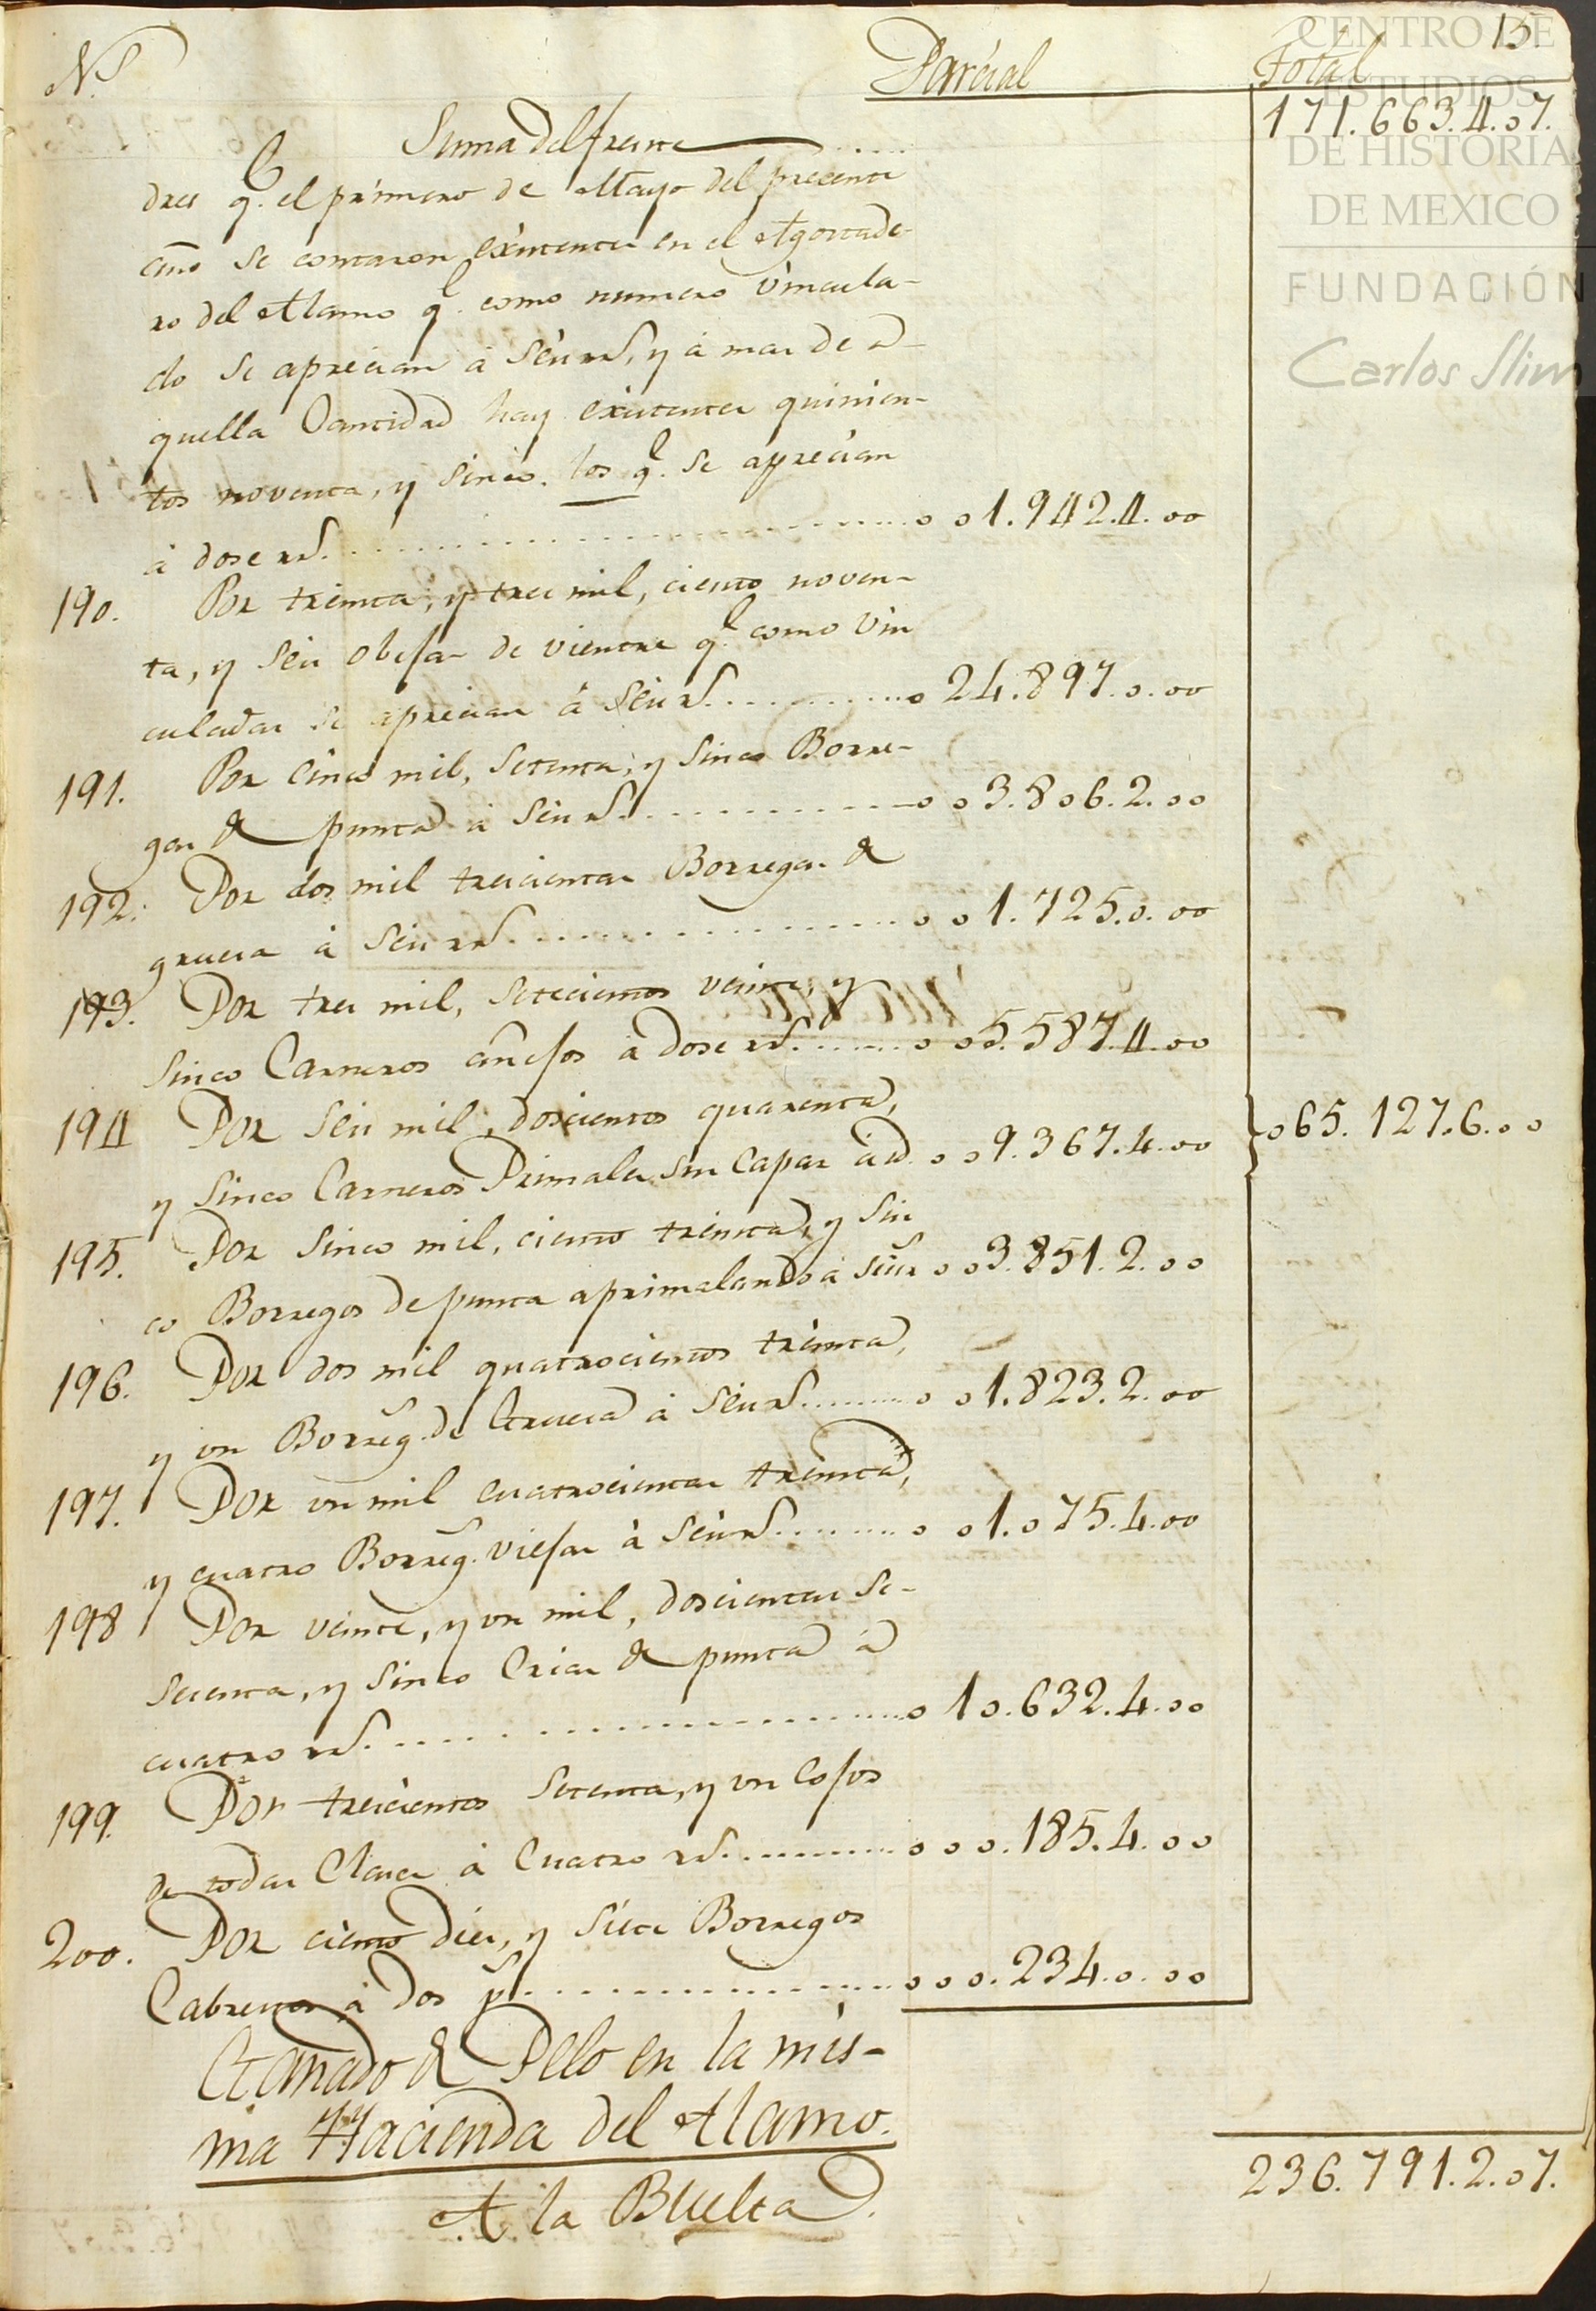 15.
N.
Parcial
Total
CENTRO DE
ESTUDIOS
DE HISTORIA
DE MEXICO
FUNDACIÓN
Carlos Slim
Suma del frente 171.663.4.07.
dres q.e el primero de Mayo del precente
año se contaron existentes en el Agostade-
ro del Alamo q.e como numero vincula-
do se aprecian à Seis rs. y à mas de a-
quella Cantidad hay existentes quinien-
tos noventa, y sinco. los q.e se aprecian
à dose rs. 1.942.4.00
190. Por treinta, y tres mil, ciento noven-
ta, y seis obejas de vientre q.e como vin
culadas se aprecian à Seis rs. 24.897.0.00
191. Por Cinco mil, Setenta, y Sinco Borre-
gas de punta à Seis rs. 3.806.2.00
192. Por dos mil trecientas Borregas de
gruesa à Seis rs. 1.725.0.00
193. Por tres mil, Setecientos veinte, y
Sinco Carneros añejos à dose rs. 5.587.4.00
194 Por Seis mil, doscientos quarenta,
y Sinco Carneros Primales sin Capar à id. 9.367.4.00
065.127.6.00
195. Por Sinco mil, ciento treinta, y Sin
co Borregos de punta aprimalando à Seis rs 3.851.2.00
196. Por dos mil quatrocientos treinta,
y un Borreg.s de Gruesa à Seis rs. 1.823.2.00
197. Por un mil cuatrocientas treinta,
y cuatro Borreg.s viejas à Seis rs. 1.075.4.00
198 Por veinte, y un mil, doscientas se-
secenta, y Sinco Crias de punta à
cuatro rs. 10.632.4.00
199. Por trecientos Setenta, y un Cojos
de todas Clases à Cuatro rs. 185.4.00
200. Por ciento Dies, y Siete Borregos
Cabreros à dos ps. 234.0.00
Ganado de Pelo en la mis-
ma Hacienda del Alamo.
A la Buelta 236.791.2.07.